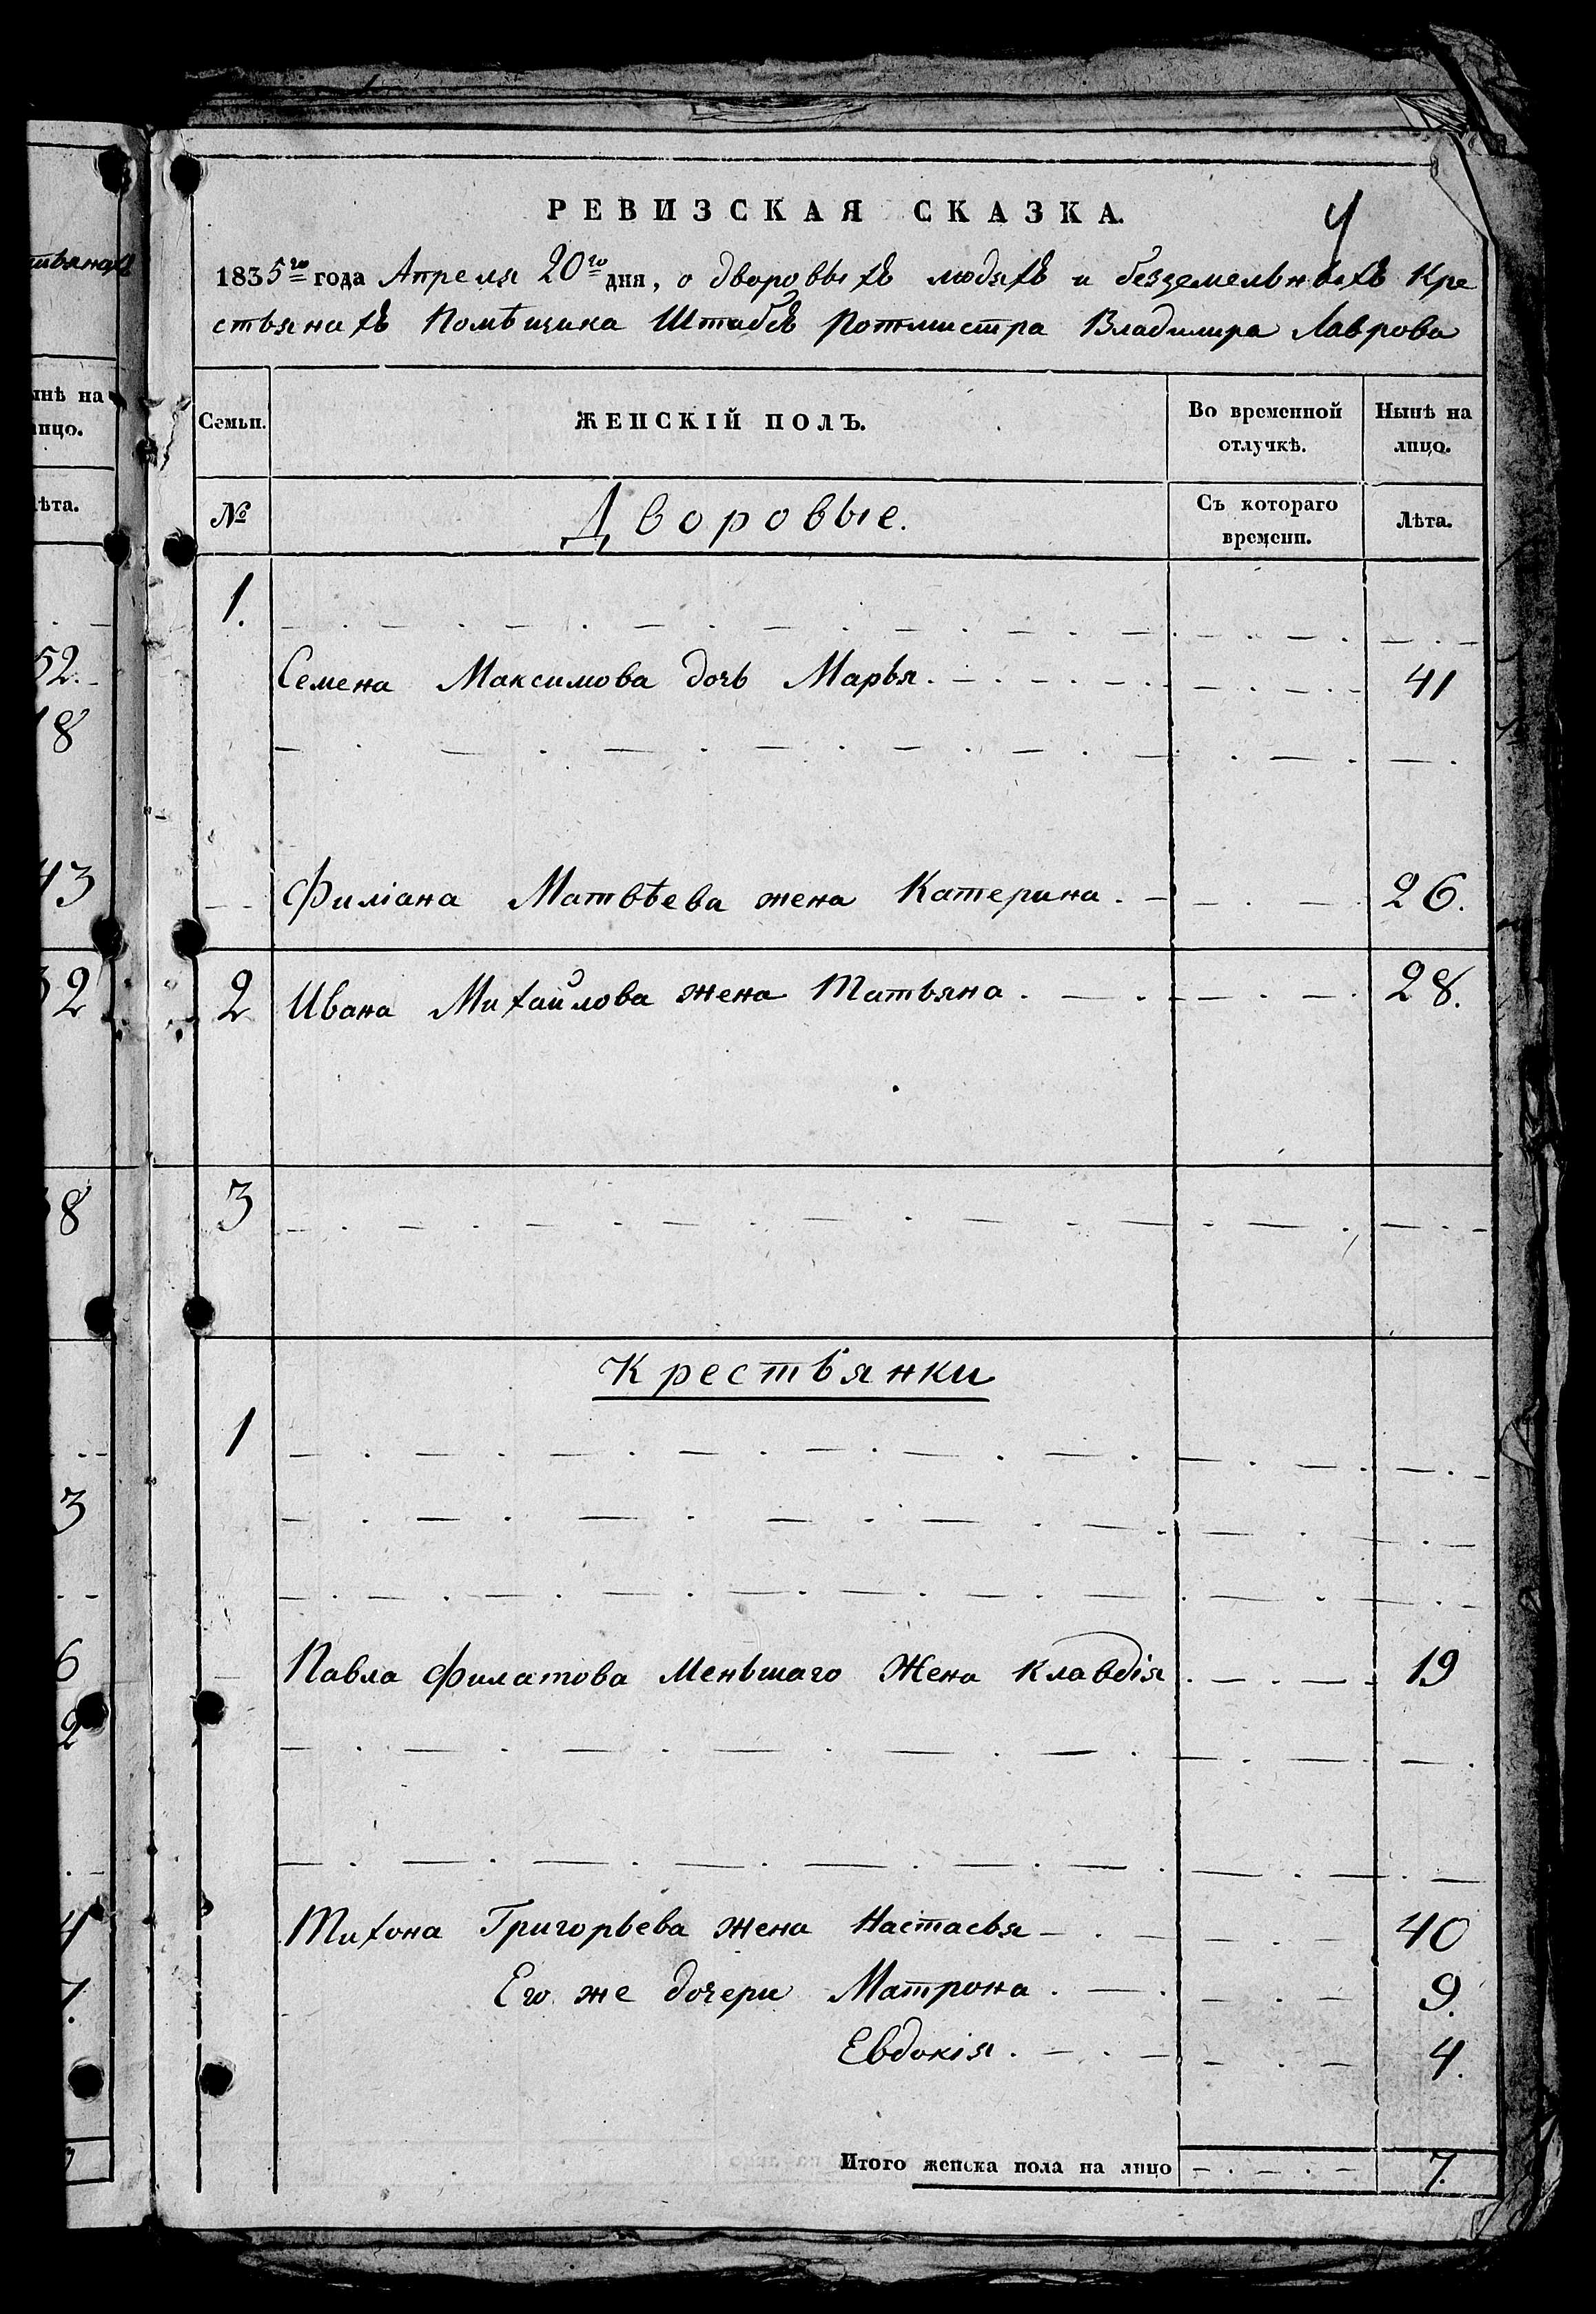 РЕВИЗСКАЯ СКАЗКА.
4
1835го года Апреля 20го дня, о дворовыхъ людяхъ и безземельныхъ Кре
стьянахъ Помѣщика Штабсъ Ротмистра Владимира Лаврова
Семьи. ЖЕНСКІЙ ПОЛЪ. Во временной отлучкѣ. Нынѣ на лицо.
№ Дворовые. Съ котораго времени. Лѣта.
1.
Семена Максимова дочь Марья. 41
Филіана Матвѣева жена Катерина. 26.
2 Ивана Михайлова жена Татьяна. 28.
3
Крестьянки
1
Павла Филатова Меньшаго Жена Клавдія 19
Тихона Григорьева жена Настасья 40
Его же дочери Матрона. 9.
Евдокія. 4.
Итого женска пола на лицо 7.
стьянахъ
ынѣ на
лицо.
Лѣта.
52.
18
43
32
38
3
6
2
4
7.